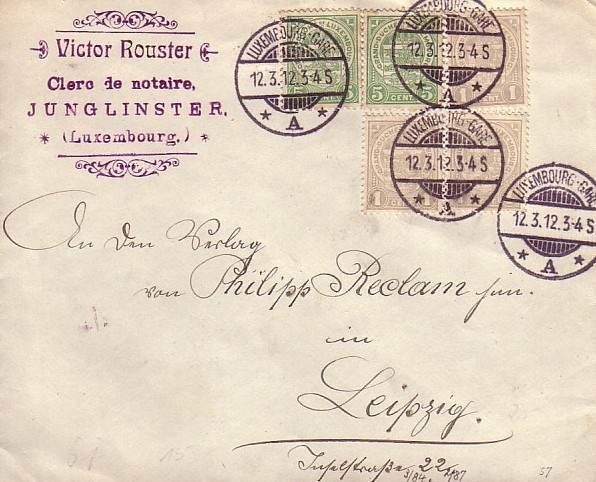 Victor Rouster
Clerc de notaire,
JUNGLINSTER,
* (Luxembourg.) *
LUXEMBOURG-GARE
12.3.12.3-4 S
* A *
LUXEMBOURG-GARE
12.3.12.3-4 S
LUXEMBOURG-GARE
12.3.12.3-4 S
A
LUXEMBOURG-GARE
12.3.12.3-4 S
* A *
5 5
CENT.
1
1 1
An den Verlag
von Philipp Reclam jun.
in
Leipzig.
Inselstraße 22
3/84.
57